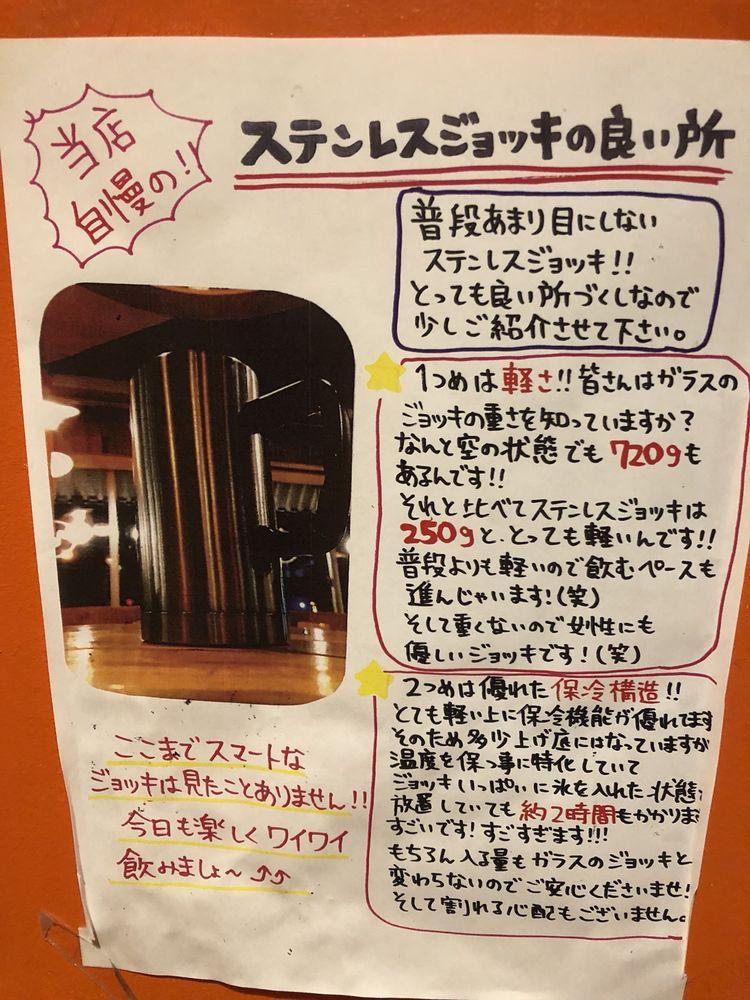 当店
自慢の!!
ステンレスジョッキの良い所
普段あまり目にしない
ステンレスジョッキ!!
とっても良い所づくしなので
少しご紹介させて下さい。
1つめは軽さ!!皆さんはガラスの
ジョッキの重さを知っていますか?
なんと空の状態でも720gも
あるんです!!
それと比べてステンレスジョッキは
250gと、とっても軽いんです!!
普段よりも軽いので飲むペースも
進んじゃいます!(笑)
そして重くないので女性にも
優しいジョッキです!(笑)
2つめは優れた保冷構造!!
とても軽い上に保冷機能が優れてます
そのため多少上げ底にはなっていますが
温度を保つ事に特化していて
ジョッキいっぱいに氷を入れた状態で
放置していても約2時間もかかりま
すごいです!すごすぎます!!!
もちろん入る量もガラスのジョッキと
変わらないのでご安心くださいませ!
そして割れる心配もございません。
ここまでスマートな
ジョッキは見たことありません!!
今日も楽しくワイワイ
飲みましょ〜⤴⤴